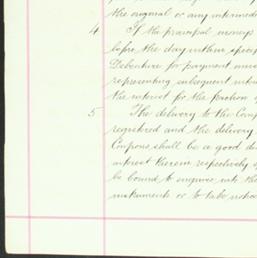 the original or any intermed
4 If the principal moneys
before the day within spec
Debenture for payment
representing subsequent
the interest for the fraction
5 The delivery to the Com
registered and the delivery
Coupons shall be a good
interest therein respectively
be bound to enquire into the
instruments or to take